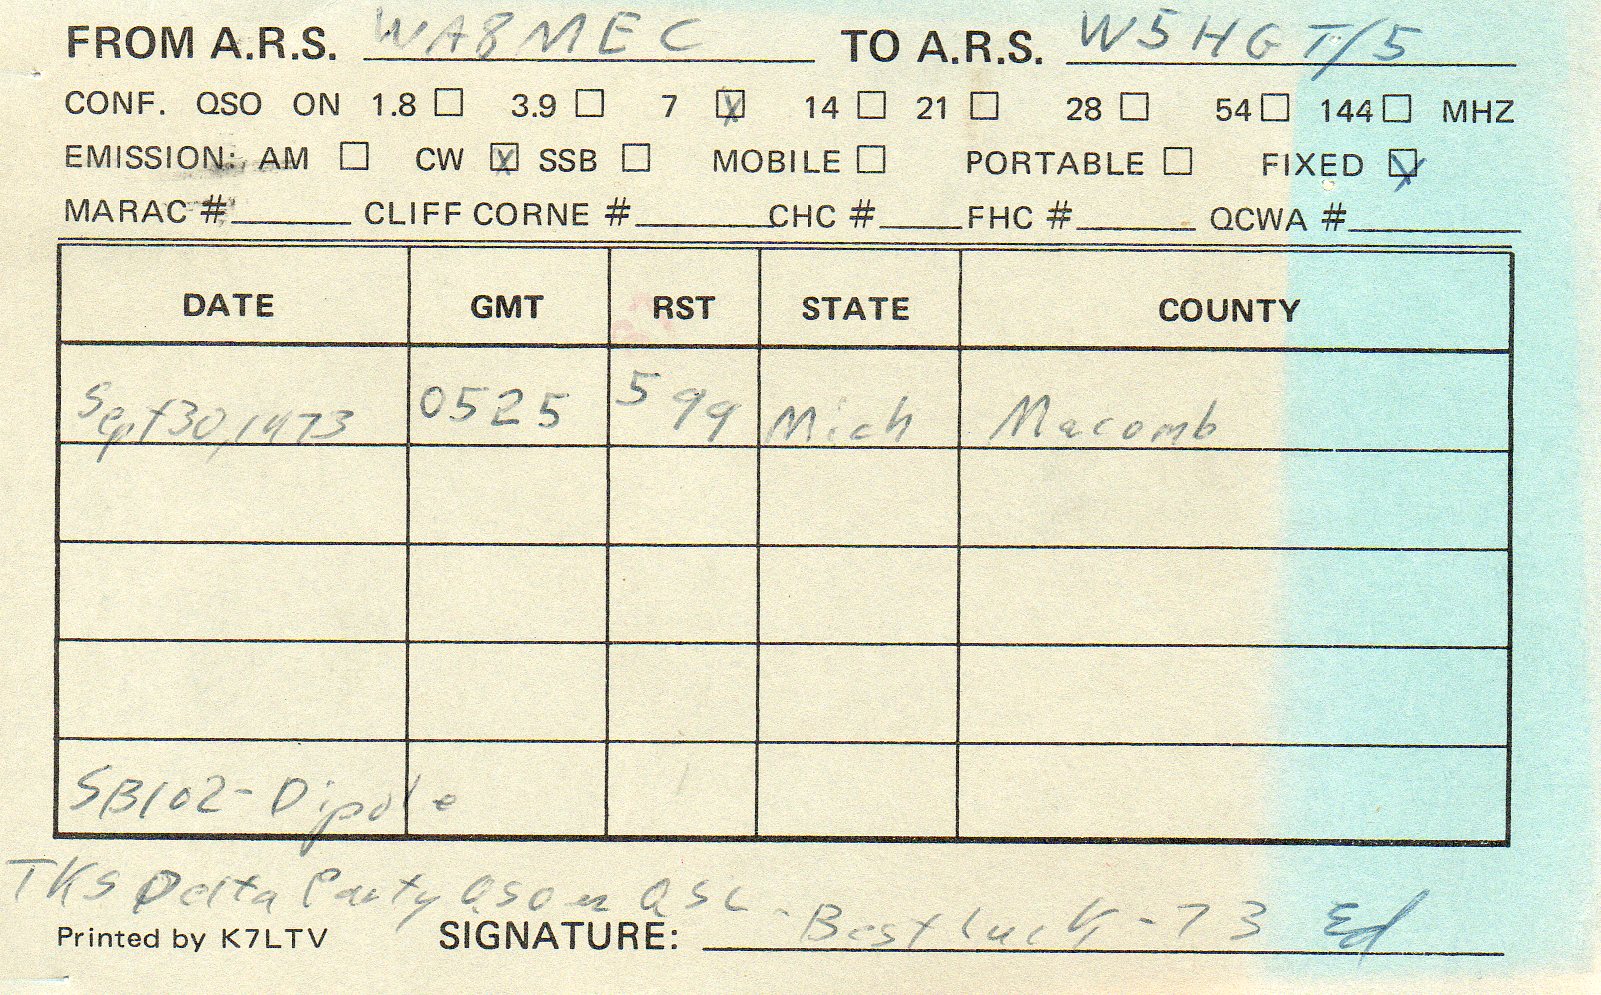 FROM A.R.S. WA8MEC TO A.R.S. W5HGT/5
CONF. QSO ON 1.8 ☐ 3.9 ☐ 7 ☒ 14 ☐ 21 ☐ 28 ☐ 54 ☐ 144 ☐ MHZ
EMISSION: AM ☐ CW ☒ SSB ☐ MOBILE ☐ PORTABLE ☐ FIXED ☒
MARAC #______ CLIFF CORNE #______ CHC #____ FHC #______ QCWA #______
DATE GMT RST STATE COUNTY
Sept 30, 1973 0525 599 Mich Macomb
SB102 - Dipole
TKS Delta Party QSO es QSL - Best luck - 73 Ed
Printed by K7LTV SIGNATURE: